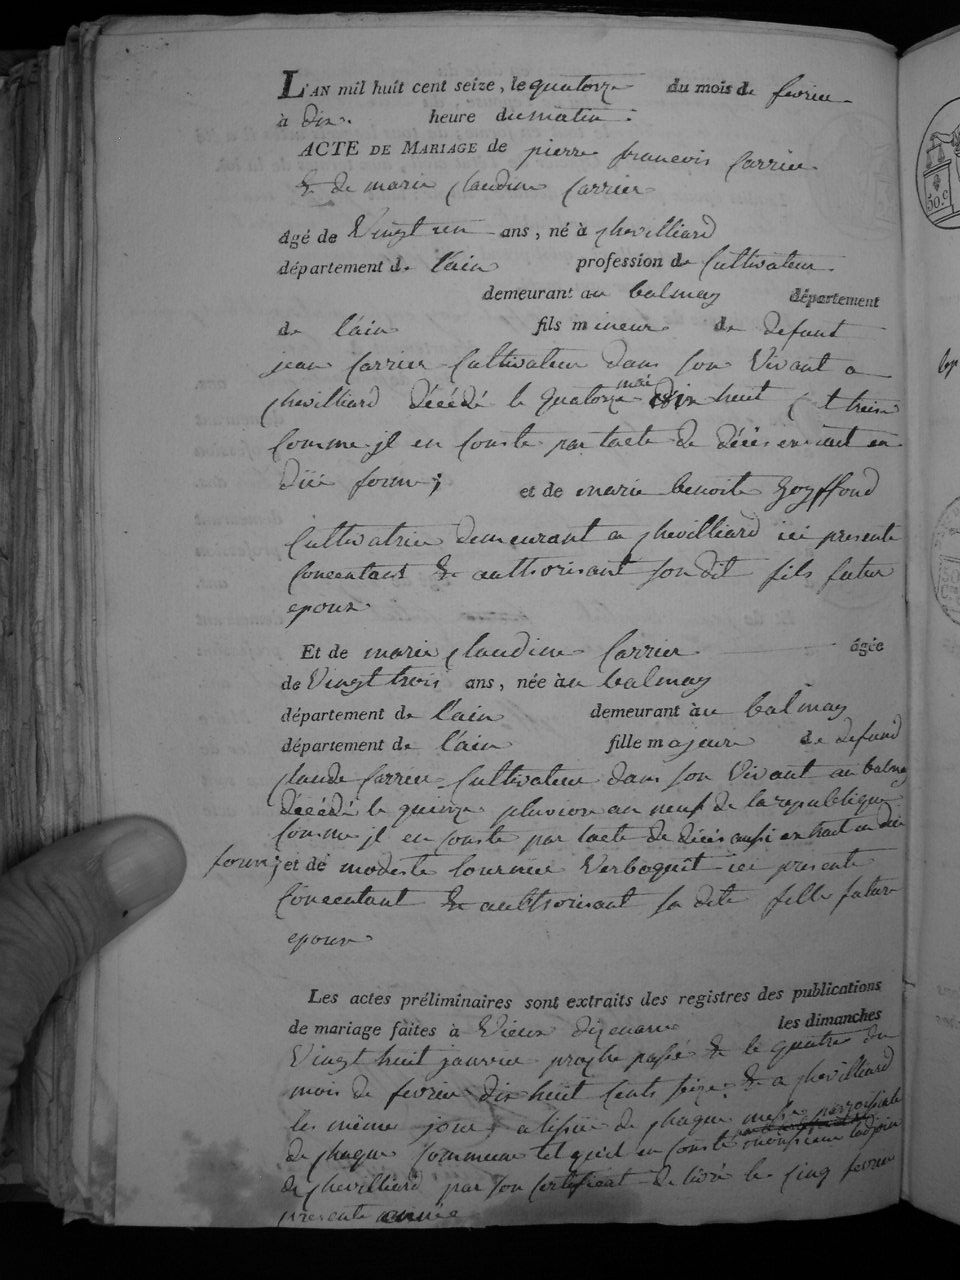 L'AN mil huit cent seize, le quatorze du mois de fevrier
à dix heure du matin.
ACTE DE MARIAGE de pierre francois Carrier
& de marie Claudine Carrier
âgé de Vingt un ans, né à Chevilliard
département de l'ain profession de Cultivateur
demeurant au balmay département
de l'ain fils mineur de defunt
jean Carrier Cultivateur dans son Vivant a
Chevilliard décédé le quatorze mai dix huit Cent treize
Comme jl en Conste par lacte de décés en
düe forme; et de marie benoite
Cultivatrice demeurant a Chevilliard ici presente
Concentant & authorisant son dit fils futur
epoux
Et de marie Claudine Carrier âgée
de Vingt trois ans, née au balmay
département de l'ain demeurant au balmay
département de l'ain fille majeure de defund
Claude Carrier Cultivateur dans son Vivant au balmay
décédé le quinze pluviose an neuf de la republique
Comme jl en Conste par lacte de décés aussi extrait en düe
forme; et de modeste Verboquet ici presente
Concentant & authorisant sa dite fille future
epoux
Les actes préliminaires sont extraits des registres des publications
de mariage faites à Vieux dizenave les dimanches
Vingt huit janvier proche passé & le quatre du
mois de fevrier dix huit Cents seize & a Chevilliard
les même jours a lissüe de Chaque messe parroissiale
de Chaque Commune tel quil en Conste monsieur ladjoint
de Chevilliard par son Certificat delivré le Cinq fevrier
presente année
50.c